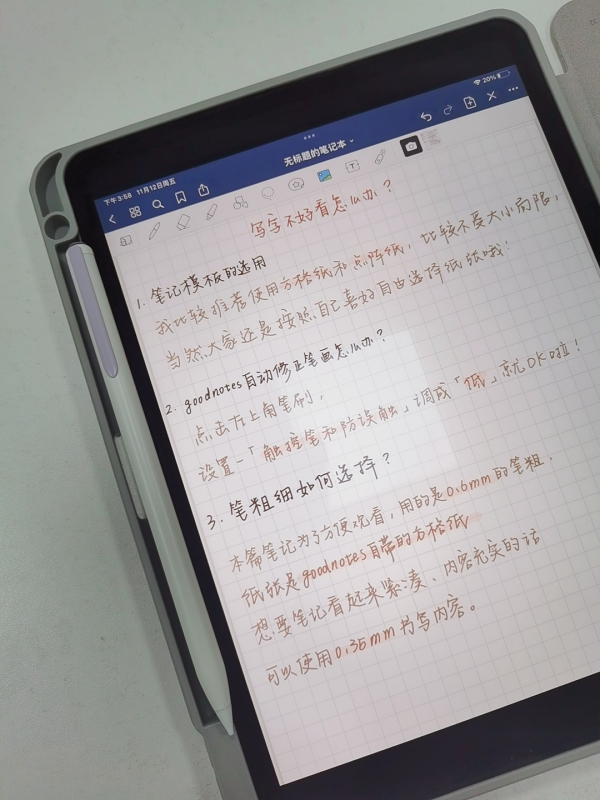 下午3:58 11月12日周五
20%
无标题的笔记本
写字不好看怎么办？
1. 笔记模板的选用
我比较推荐使用方格纸和点阵纸，比较不受大小局限，
当然大家还是按照自己喜好自由选择纸张哦！
2. goodnotes自动修正笔画怎么办？
点击左上角笔刷，
设置-「触控笔和防误触」调成「低」就OK啦！
3. 笔粗细如何选择？
本篇笔记为了方便观看，用的是0.6mm的笔粗，
纸张是goodnotes自带的方格纸
想要笔记看起来紧凑、内容充实的话
可以使用0.35mm书写内容。